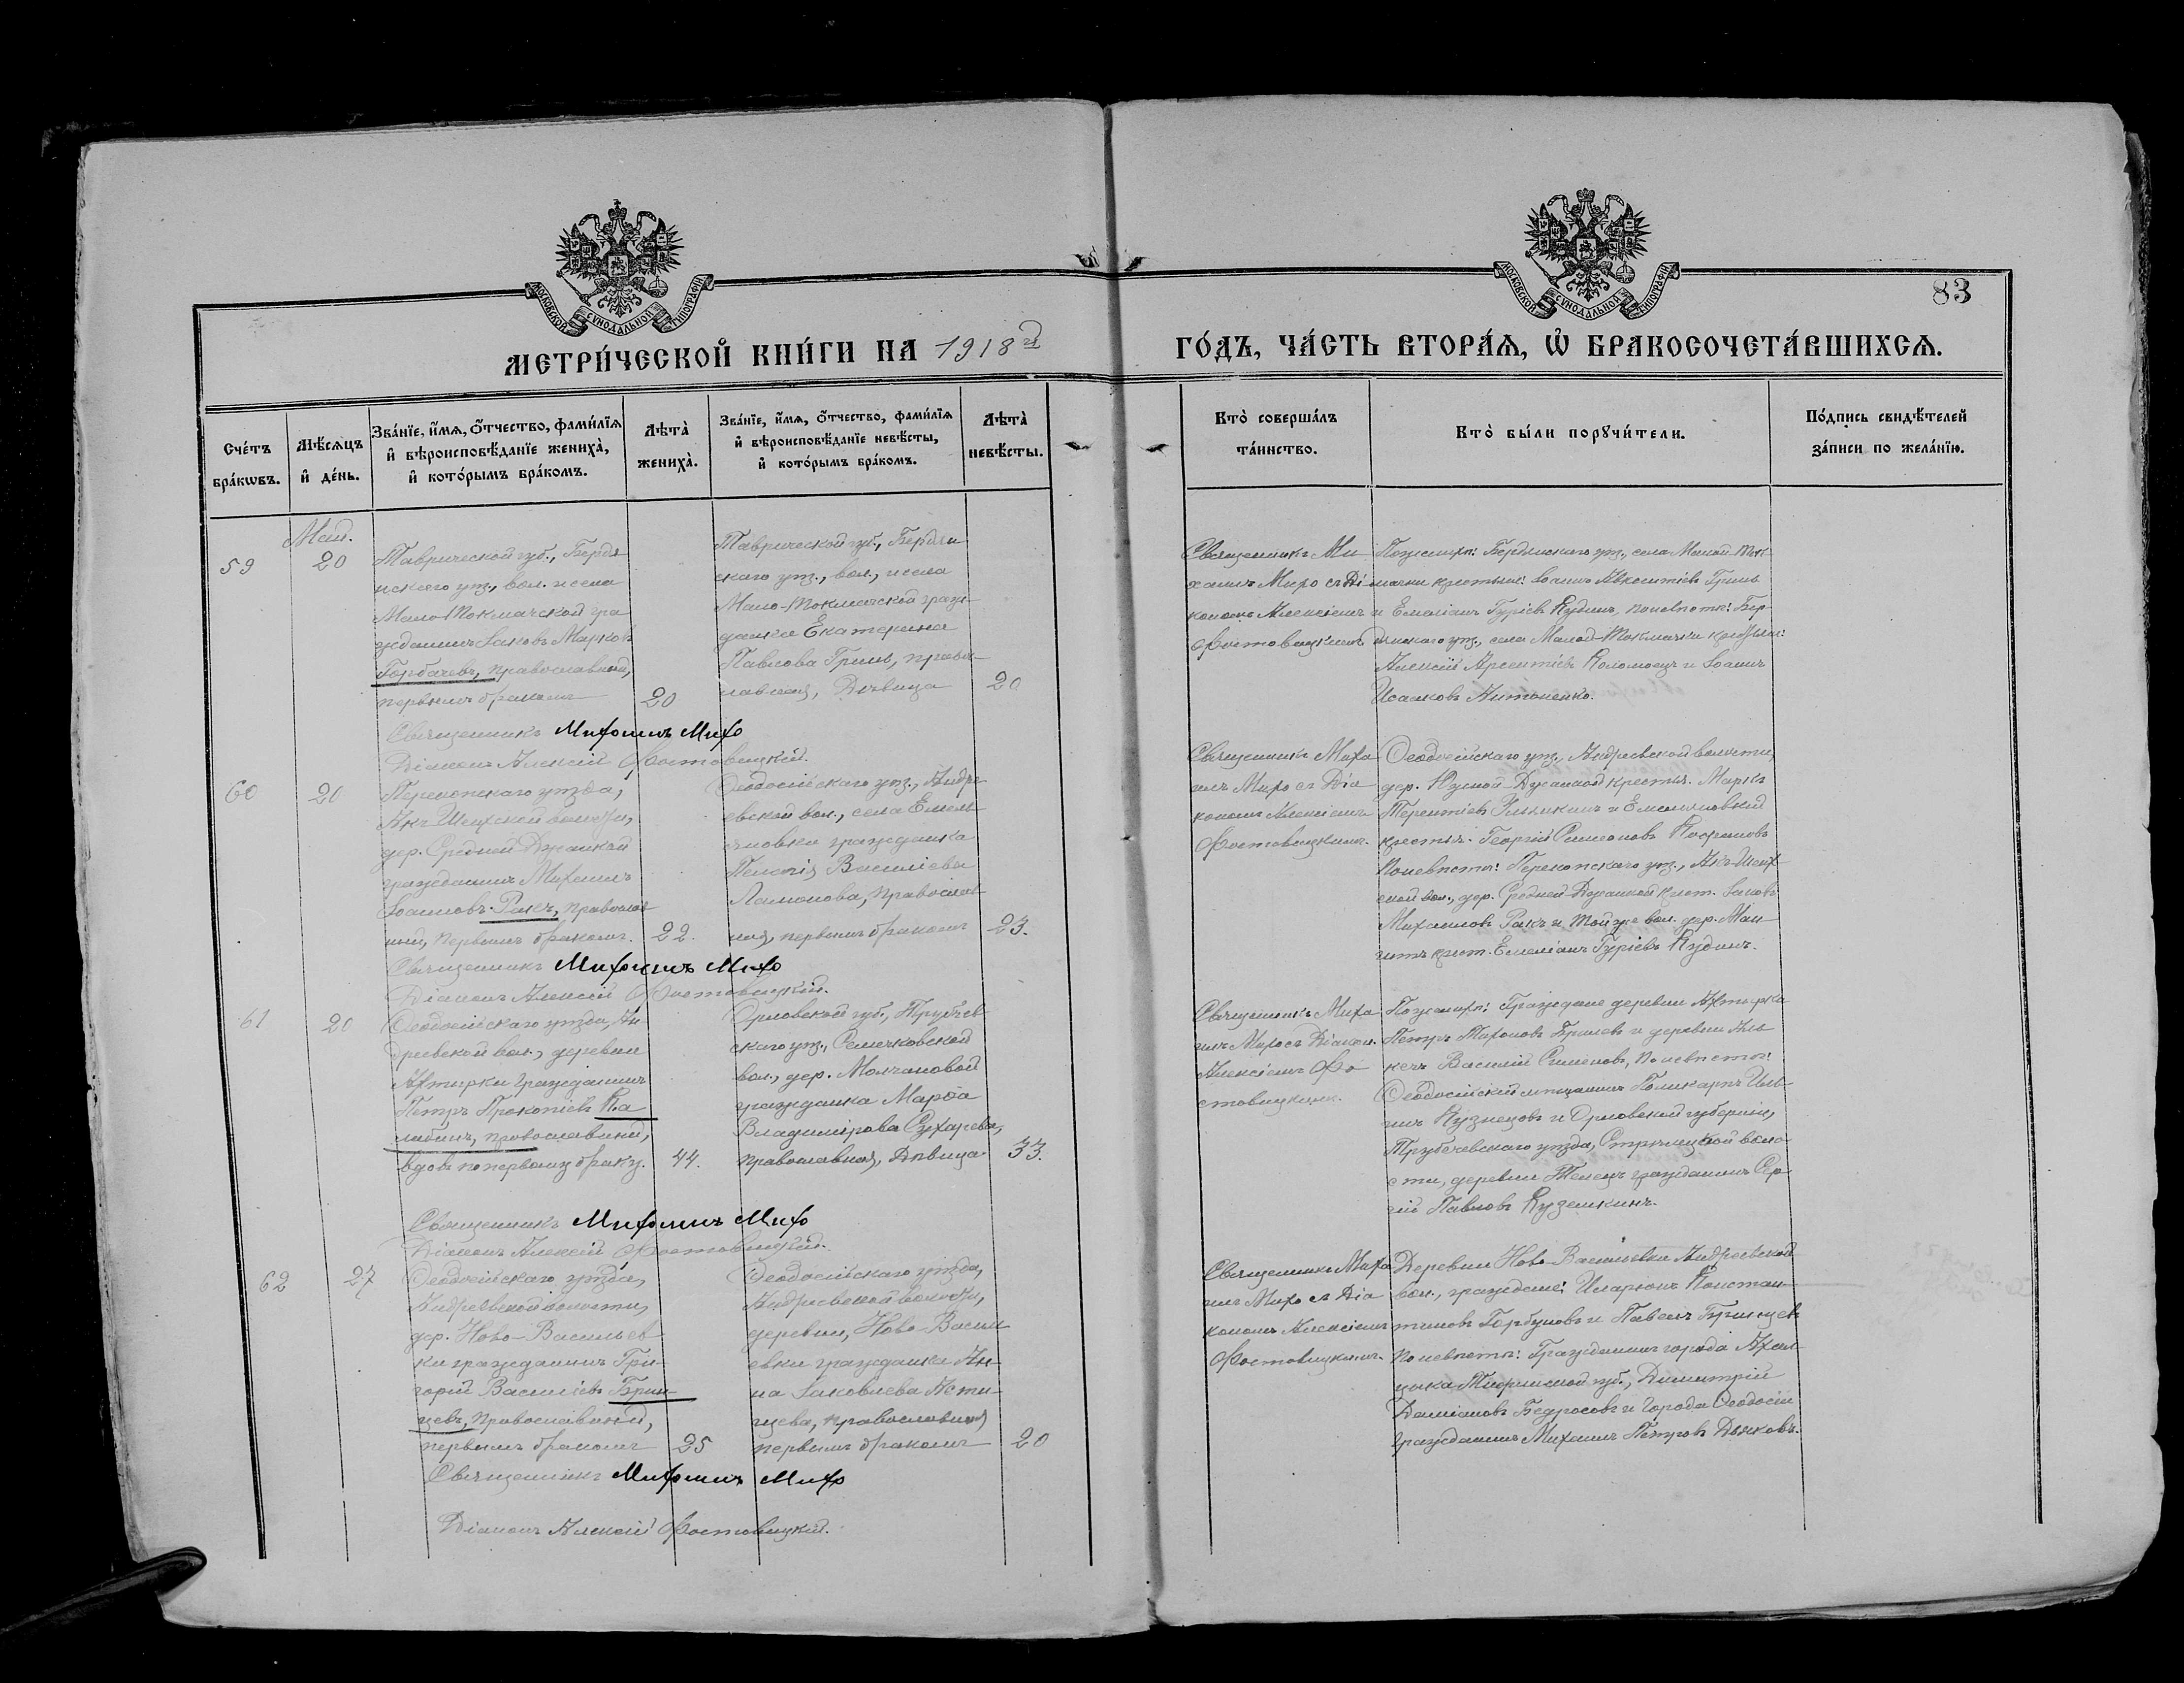 МОСКОВСКОЙ СѴНОДАЛЬНОЙ ТИПОГРАФІИ
МОСКОВСКОЙ СѴНОДАЛЬНОЙ ТИПОГРАФІИ
83
МЕТРИ́ЧЕСКОЙ КНИ́ГИ НА 1918й
ГО́ДЪ, ЧА́СТЬ ВТОРА́Ѧ, Ѡ҆ БРАКОСОЧЕТА́ВШИХСѦ.
Сче́тъ бра́кωвъ.
Мѣ́сѧцъ и҆ де́нь.
Зва́нїе, и҆́мѧ, ѻ҆́тчество, фами́лїѧ и҆ вѣроисповѣ́данїе жениха̀, и҆ кото́рымъ бра́комъ.
Лѣта̀ жениха̀.
Зва́нїе, и҆́мѧ, ѻ҆́тчество, фами́лїѧ и҆ вѣроисповѣ́данїе невѣ́сты, и҆ кото́рымъ бра́комъ.
Лѣта̀ невѣ́сты.
Кто̀ соверша́лъ та́инство.
Кто̀ бы́ли порꙋчи́тели.
По́дпись свидѣ́телей за́писи по жела́нїю.
Май.
59
20
Таврической губ., Бердя
нскаго уѣз., вол. и села
Мало-Токмачской гра
жданинъ Іаковъ Марковъ
Горбачевъ, православный,
первымъ бракомъ
20
Таврической губ., Бердян
скаго уѣз., вол., и села
Мало-Токмачской граж-
данка Екатерина
Павлова Гринь, право-
славная, Дѣвица
20
Священникъ Ми
хаилъ Миро съ Ді
кономъ Алексіемъ
Фостовицкимъ
По женихѣ: Бердянскаго уѣз., села Малой Ток
мачки крестьяне: Іоаннъ Гринь
и Емеліанъ Гуріевъ Кудинъ, по невѣстѣ: Бер-
дянскаго уѣз., села Малой-Токмачки крестьяне:
Алексій Арсентіевъ Коломоецъ и Іоаннъ
Исааковъ Антоненко.
Священникъ Михаилъ Миро
Діаконъ Алексій Фостовицкій.
60
20
Перекопскаго уѣзда,
Акъ-Шейхской волости,
дер. Средней Джанкой
гражданинъ Михаилъ
Іоанновъ Ракъ, православ
ный, первымъ бракомъ.
22.
Ѳеодосійскаго уѣз., Андре
евской вол., села Емель
яновки гражданка
Пелагія Василіева
православ
ная, первымъ бракомъ
23.
Священникъ Миха
илъ Миро съ Діа
кономъ Алексіемъ
Фостовицкимъ.
Ѳеодосійскаго уѣз., Андреевской волости,
дер. Джанкой крестьян. Маркъ
Терентіевъ и Емельяновкій
крестьян. Георгій Симеоновъ
По невѣстѣ: Перекопскаго уѣз., Акъ-Шейх
ской вол., дер. Средней Джанкой крест. Іаковъ
Михаиловъ Ракъ и той же вол. дер. Ман
гитъ крест. Емеліанъ Гуріевъ Кудинъ.
Священникъ Михаилъ Миро
Діаконъ Алексій Фостовицкій.
61
20
Ѳеодосійскаго уѣзда, Ан
дреевской вол., деревни
Ахтырки гражданинъ
Петръ Прокопіевъ Ка
либинъ, православный,
вдовъ по первому браку.
44.
Орловской губ., Трубчев
скаго уѣз., Семячковской
вол., дер. Молчановой
гражданка Марѳа
Владимірова Сухарева,
православная, Дѣвица
33.
Священникъ Миха
илъ Миро съ Діакон.
Алексіемъ Фо
стовицкимъ.
По женихѣ: Граждане деревни Ахтырка
Петръ и деревни
Василій Симеоновъ, по невѣстѣ:
Ѳеодосійскій мѣщанинъ Поликарпъ Иль-
инъ Кузнецовъ и Орловской губерніи,
Трубчевскаго уѣзда, воло-
сти, деревни Телецъ гражданинъ Сер
гій Павловъ Куземкинъ.
Священникъ Михаилъ Миро
Діаконъ Алексій Фостовицкій.
62
27
Ѳеодосійскаго уѣзда,
Андреевской волости,
дер. Ново-Васильев
ки гражданинъ Гри-
горій Василіевъ Брин-
цевъ, православный,
первымъ бракомъ
25
Ѳеодосійскаго уѣзда,
Андреевской волости,
деревни, Ново-Васил
евки гражданка Ан-
на Іаковлева
православная
первымъ бракомъ
20
Священникъ Миха
илъ Миро съ Діа
кономъ Алексіемъ
Фостовицкимъ.
Деревни Ново-Васильевки Андреевской
вол., граждане: Иларіонъ Констан
тиновъ Горбуновъ и Павелъ Бринцевъ
По невѣстѣ: Гражданинъ города Ахал
цыка Тифлиской губ., Димитрій
Даміановъ Бедросовъ и города Ѳеодосіи
гражданинъ Михаилъ Петровъ Дьяковъ.
Священникъ Михаилъ Миро
Діаконъ Алексій Фостовицкій.